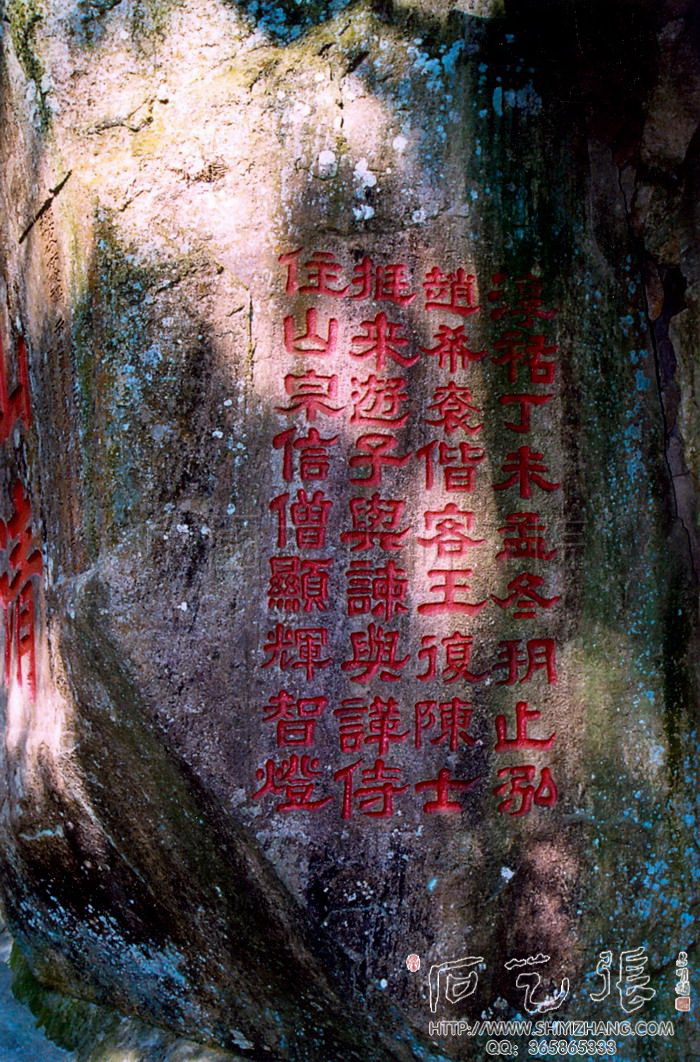 淳祐丁未孟冬玥止泓
趙希衮偕客王復陳士
挺来遊子與諫與譁侍
住山宗信僧顯輝智燈
石艺張
HTTP://WWW.SHIYIZHANG.COM
QQ: 365865333